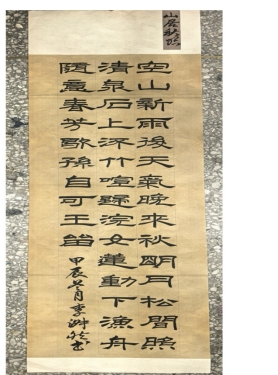 山居秋暝
空山新雨後天氣晚來秋明月松間照
清泉石上流竹喧歸浣女蓮動下漁舟
隨意春芳歇孫自可王留
甲辰冬月李書